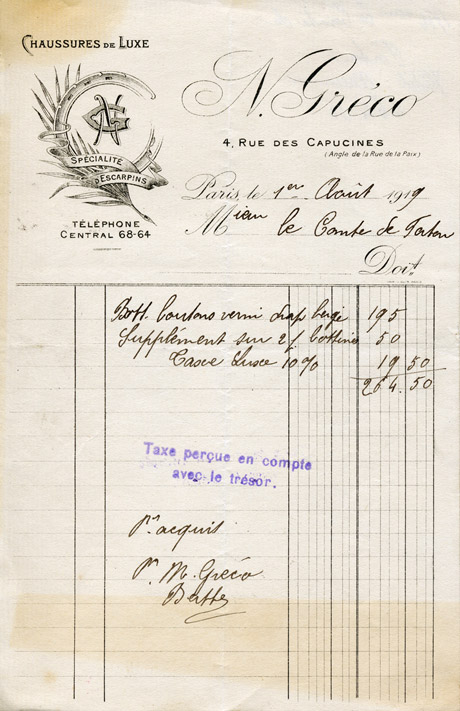 CHAUSSURES DE LUXE
NG
SPÉCIALITÉ
D'ESCARPINS
TÉLÉPHONE
CENTRAL 68-64
N. Gréco
4, RUE DES CAPUCINES
(Angle de la Rue de la Paix)
Paris, le 1er Août 1919
M le Comte de
Doit
Bott. boutons verni drap beige 195
Supplément sur 2 f. bottines 50
Taxe Luxe 10% 19 50
264. 50
Taxe perçue en compte
avec le trésor.
Pr acquit
Pr. M. Gréco
Berthe